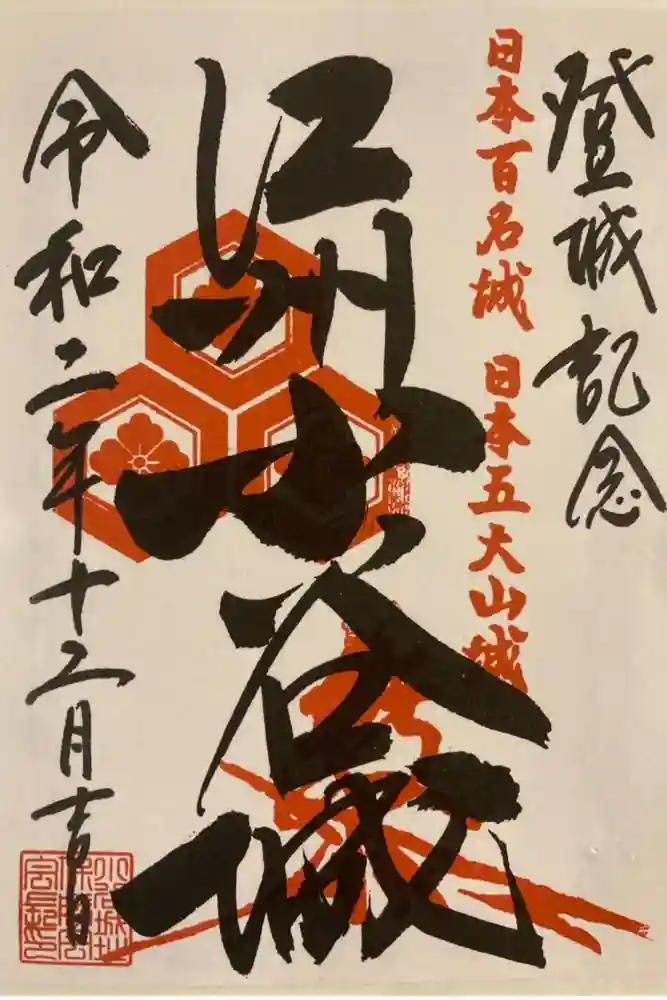 登城記念
日本百名城 日本五大山城
江州小谷城
令和二年十二月吉日